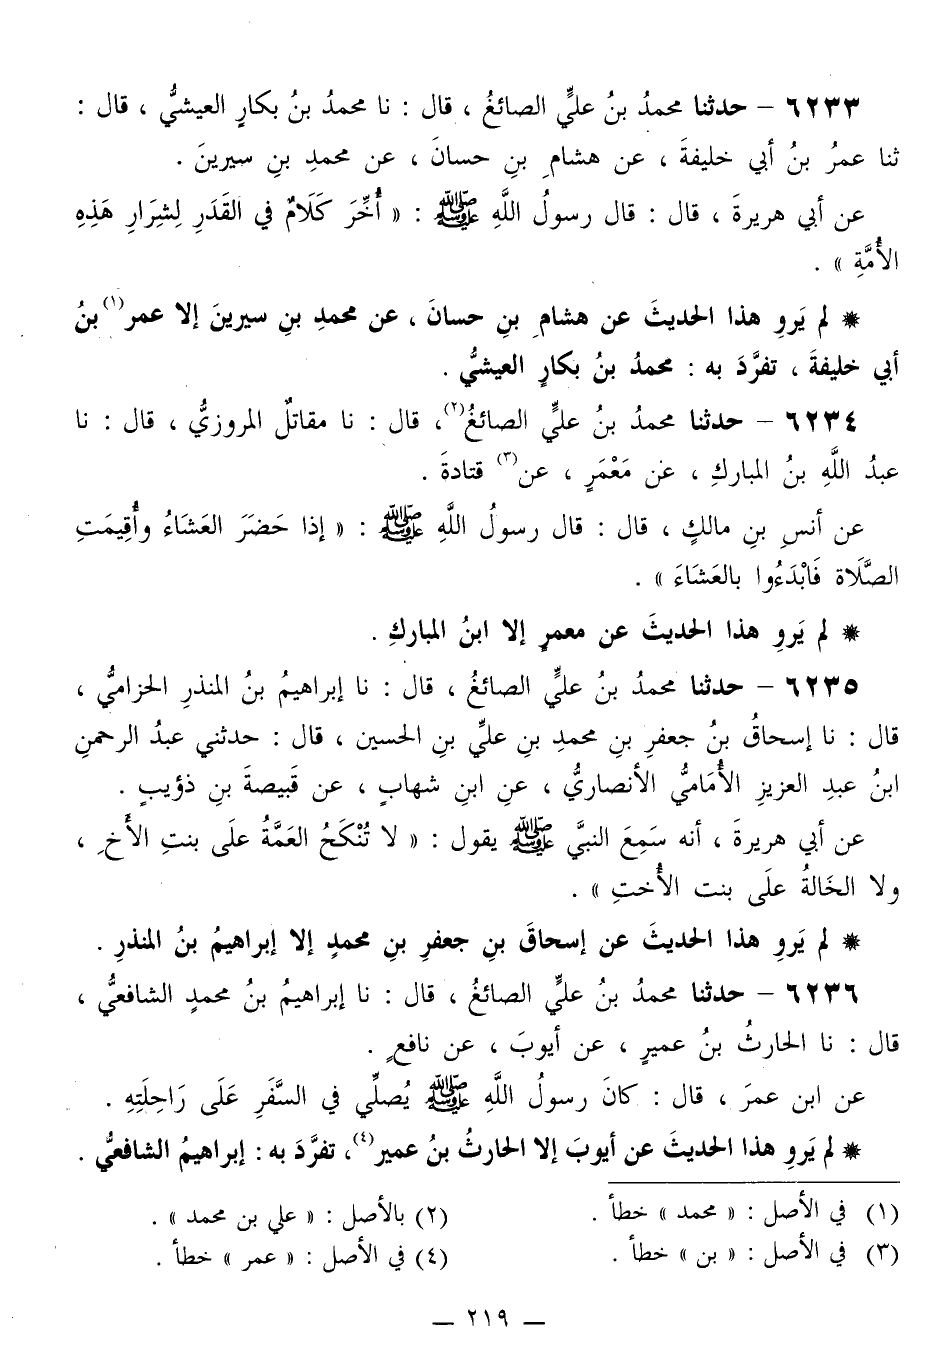 ٦٢٣٣ – حدثنا محمدُ بنُ عليٍّ الصائغُ ، قال : نا محمدُ بنُ بكارٍ العيشيُّ ، قال :
ثنا عمرُ بنُ أبي خليفةَ ، عن هشامِ بنِ حسانَ ، عن محمدِ بنِ سيرينَ .
عن أبي هريرةَ ، قال : قال رسولُ اللَّهِ ﷺ : « أُخِّرَ كَلَامٌ في القَدَرِ لِشِرَارِ هَذِهِ
الأُمَّةِ » .
* لم يَروِ هذا الحديثَ عن هشامِ بنِ حسانَ ، عن محمدِ بنِ سيرينَ إلا عمر(١) بنُ
أبي خليفةَ ، تفرَّدَ به : محمدُ بنُ بكارٍ العيشيُّ .
٦٢٣٤ – حدثنا محمدُ بنُ عليٍّ الصائغُ(٢)، قال : نا مقاتلٌ المروزيُّ ، قال : نا
عبدُ اللَّهِ بنُ المباركِ ، عن مَعْمَرٍ ، عن(٣) قتادةَ .
عن أنسِ بنِ مالكٍ ، قال : قال رسولُ اللَّهِ ﷺ : « إذا حَضَرَ العَشَاءُ وأُقِيمَتِ
الصَّلَاة فَابْدَءُوا بالعَشَاءَ » .
* لم يَروِ هذا الحديثَ عن معمرٍ إلا ابنُ المباركِ .
٦٢٣٥ – حدثنا محمدُ بنُ عليٍّ الصائغُ ، قال : نا إبراهيمُ بنُ المنذرِ الحزاميُّ ،
قال : نا إسحاقُ بنُ جعفرِ بنِ محمدِ بنِ عليِّ بنِ الحسين ، قال : حدثني عبدُ الرحمنِ
ابنُ عبدِ العزيزِ الأُمَاميُّ الأنصاريُّ ، عنِ ابنِ شهابٍ ، عن قَبيصةَ بنِ ذؤيبٍ .
عن أبي هريرةَ ، أنه سَمِعَ النبيَّ ﷺ يقول : « لا تُنْكَحُ العَمَّةُ علَى بنتِ الأَخِ ،
ولا الخَالةُ علَى بنت الأُختِ » .
* لم يَروِ هذا الحديثَ عن إسحاقَ بنِ جعفرِ بنِ محمدٍ إلا إبراهيمُ بنُ المنذرِ .
٦٢٣٦ – حدثنا محمدُ بنُ عليٍّ الصائغُ ، قال : نا إبراهيمُ بنُ محمدٍ الشافعيُّ ،
قال : نا الحارثُ بنُ عميرٍ ، عن أيوبَ ، عن نافعٍ .
عن ابن عمرَ ، قال : كانَ رسولُ اللَّهِ ﷺ يُصلِّي في السَّفَرِ عَلَى رَاحِلَتِهِ .
* لم يَروِ هذا الحديثَ عن أيوبَ إلا الحارثُ بنُ عمير(٤)، تفرَّدَ به : إبراهيمُ الشافعيُّ .
(١) في الأصل : « محمد » خطأ .
(٢) بالأصل : « علي بن محمد » .
(٣) في الأصل : « بن » خطأ .
(٤) في الأصل : « عمر » خطأ .
— ٢١٩ —